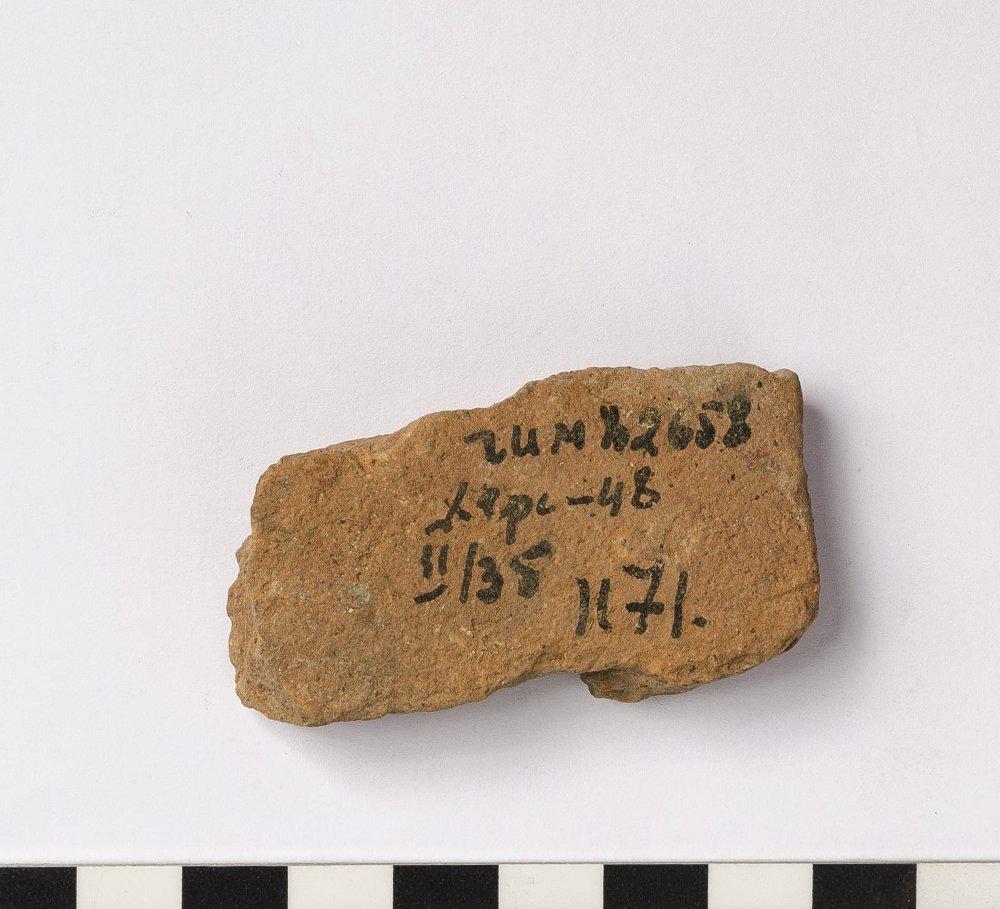 гим 82658
херс-48
II/35
1171.